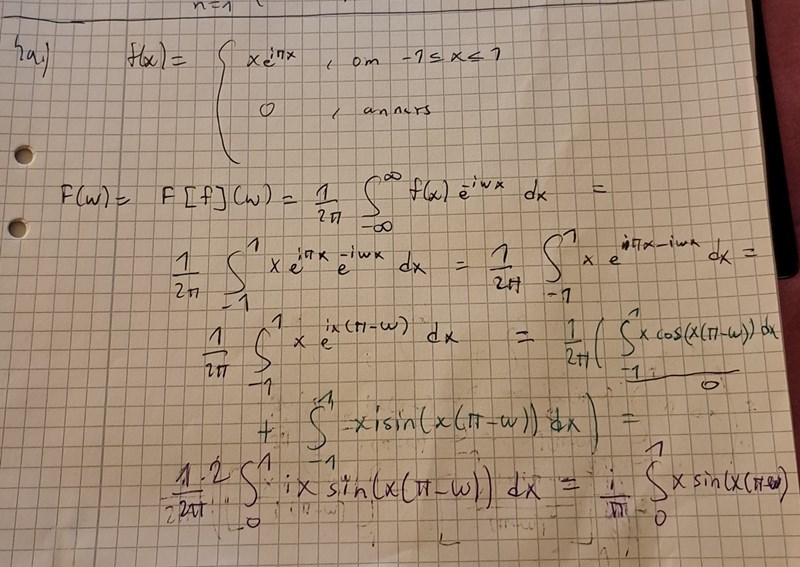 n=1
f(x) = { x e^{iπx} , om -1 ≤ x ≤ 1
0 , anners
F(w) = F[f](w) = 1/2π ∫_{-∞}^{∞} f(x) e^{-iwx} dx =
1/2π ∫_{-1}^{1} x e^{iπx} e^{-iwx} dx = 1/2π ∫_{-1}^{1} x e^{iπx-iwx} dx =
1/2π ∫_{-1}^{1} x e^{ix(π-w)} dx = 1/2π ( ∫_{-1}^{1} x cos(x(π-w)) dx
0
+ ∫_{-1}^{1} x i sin(x(π-w)) dx ) =
1·2/2π ∫_{0}^{1} ix sin(x(π-w)) dx = i/π ∫_{0}^{1} x sin(x(π-w))